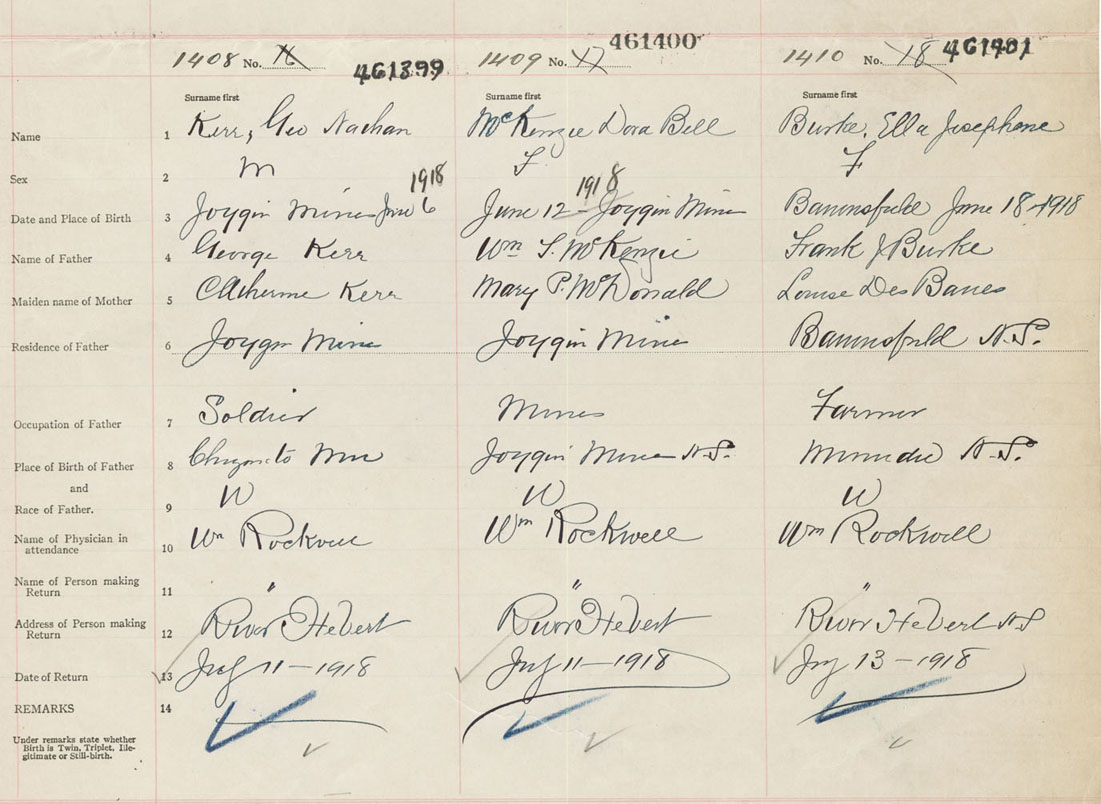 1408 No. 461399 1409 No. 17 461400 1410 No. 18 461401
Surname first Surname first Surname first
Name 1 Kerr, Geo Nathan McKenzie Dora Bell Burke, Ella Josephene
Sex 2 M F F
1918 1918
Date and Place of Birth 3 Joggin Mines June 6 June 12 - Joggin Mines June 18-1918
Name of Father 4 George Kerr Wm S. McKenzie Frank J Burke
Maiden name of Mother 5 Catherine Kerr Mary P. McDonald Louise Des Bares
Residence of Father 6 Joggin Mines Joggin Mines N.S.
Occupation of Father 7 Soldier Miner Farmer
Place of Birth of Father 8 Joggin Mines N.S. Minudie N.S.
and
Race of Father. 9 W W W
Name of Physician in attendance 10 Wm Rockwell Wm Rockwell Wm Rockwell
Name of Person making Return 11 " " "
Address of Person making Return 12 River Hebert River Hebert River Hebert N.S
Date of Return 13 July 11-1918 July 11-1918 July 13-1918
REMARKS 14
Under remarks state whether
Birth is Twin, Triplet, Ille-
gitimate or Still-birth.